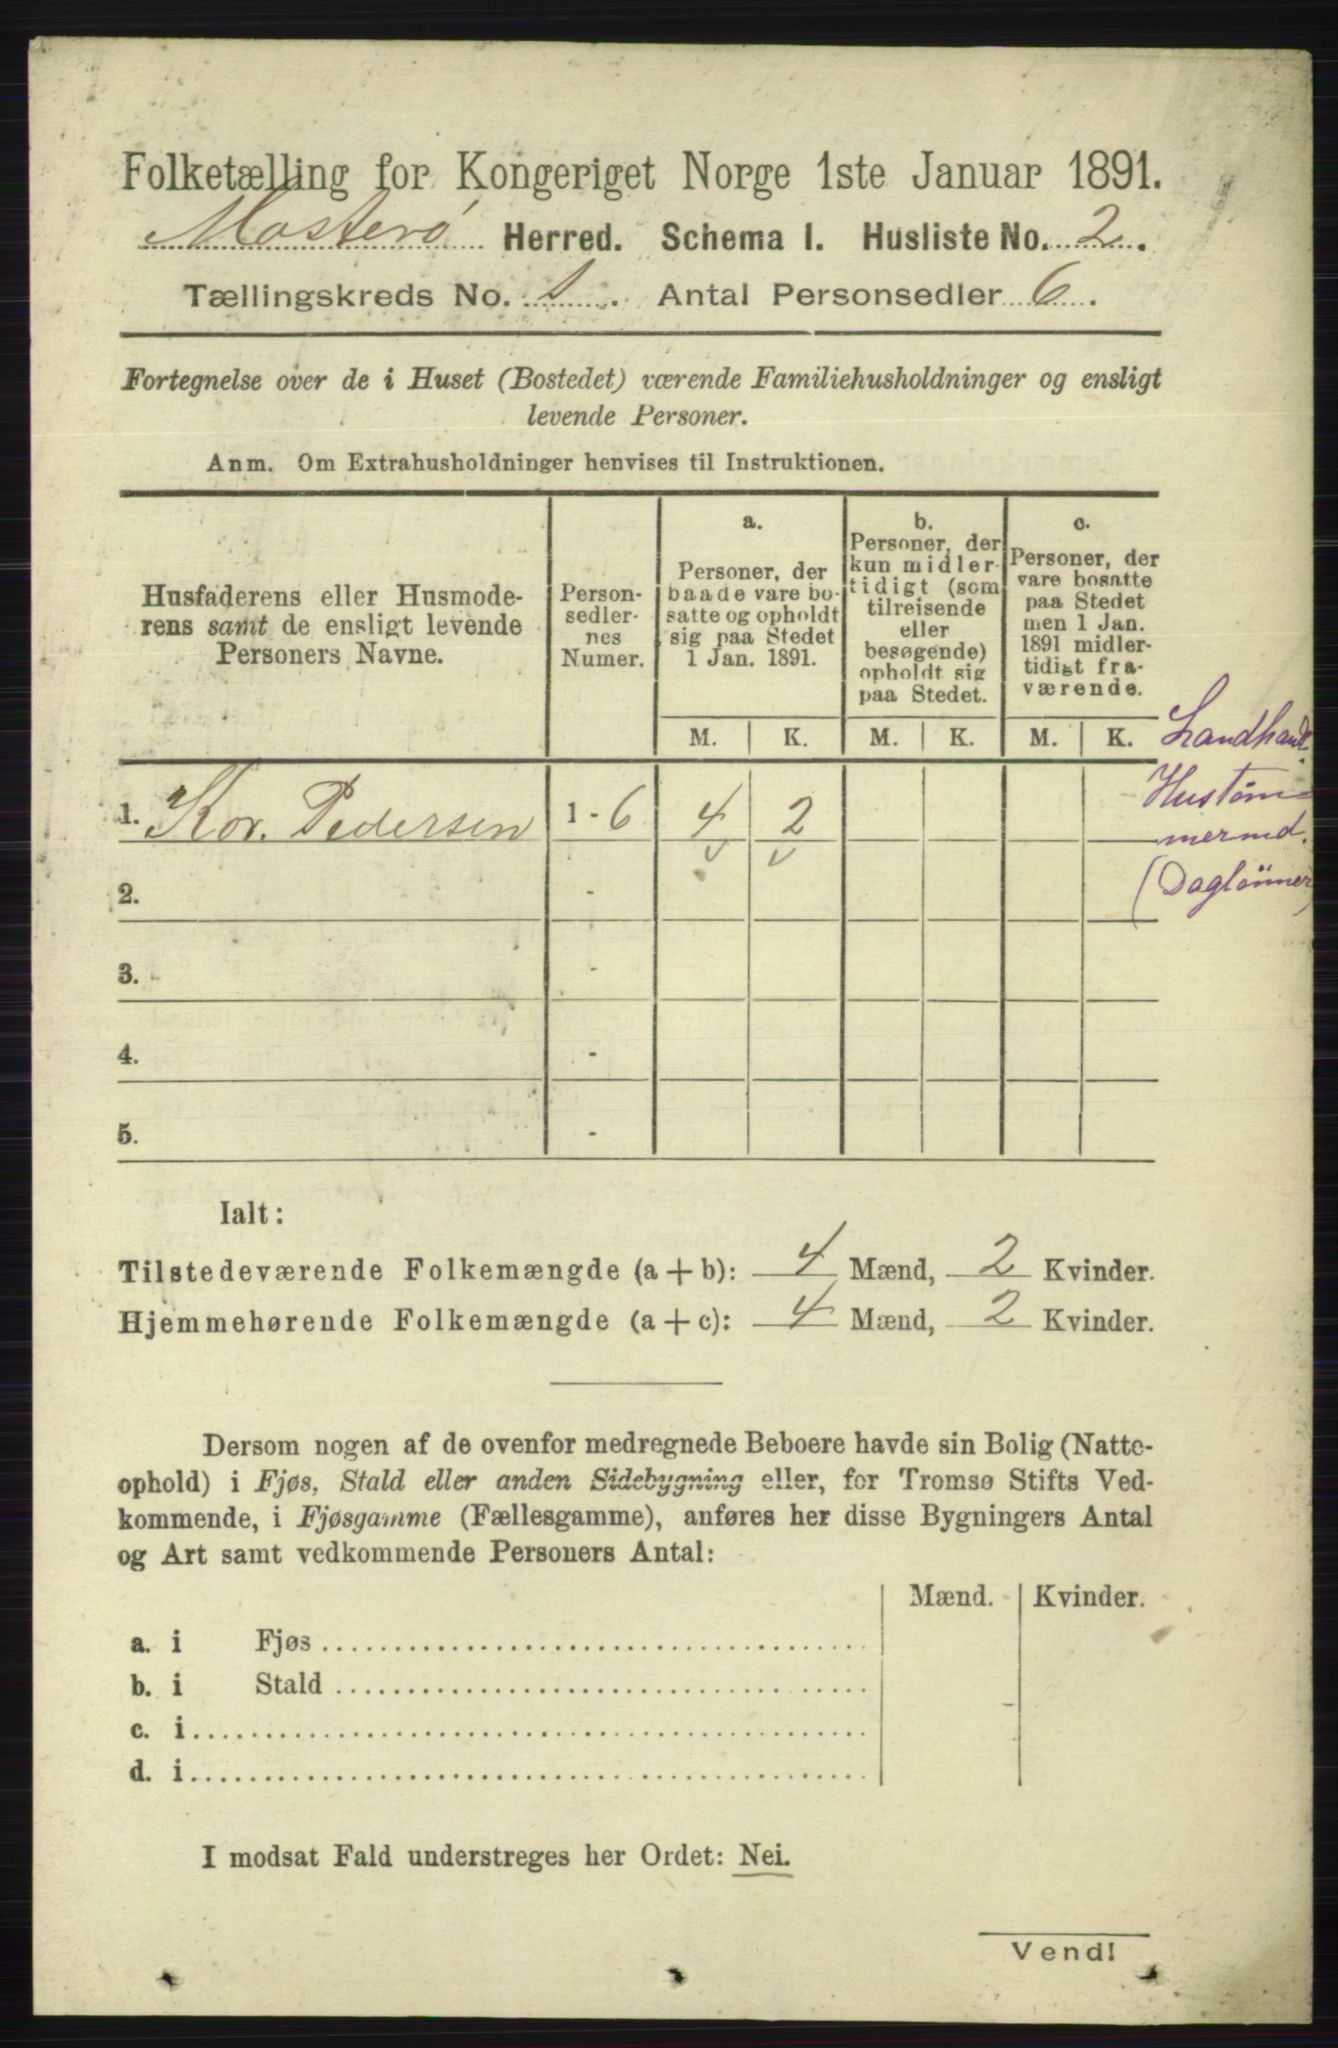 Folketælling for Kongeriget Norge 1ste Januar 1891.
Mosterø Herred. Schema I. Husliste No. 2.
Tællingskreds No. 1. Antal Personsedler 6.
Fortegnelse over de i Huset (Bostedet) værende Familiehusholdninger og ensligt
levende Personer.
Anm. Om Extrahusholdninger henvises til Instruktionen.
Husfaderens eller Husmode-
rens samt de ensligt levende
Personers Navne.
Person-
sedler-
nes
Numer.
a.
Personer, der
baade vare bo-
satte og opholdt
sig paa Stedet
1 Jan. 1891.
b.
Personer, der
kun midler-
tidigt (som
tilreisende
eller
besøgende)
opholdt sig
paa Stedet.
c.
Personer, der
vare bosatte
paa Stedet
men 1 Jan.
1891 midler-
tidigt fra-
værende.
M. K. M. K. M. K.
Landhand.
Hustøm-
mermd.
(Daglønner)
1. Kor. Pedersen 1 - 6 4 2
2. -
3. -
4. -
5. -
Ialt:
Tilstedeværende Folkemængde (a + b): 4 Mænd, 2 Kvinder.
Hjemmehørende Folkemængde (a + c): 4 Mænd, 2 Kvinder.
Dersom nogen af de ovenfor medregnede Beboere havde sin Bolig (Natte-
ophold) i Fjøs, Stald eller anden Sidebygning eller, for Tromsø Stifts Ved-
kommende, i Fjøsgamme (Fællesgamme), anføres her disse Bygningers Antal
og Art samt vedkommende Personers Antal:
Mænd. Kvinder.
a. i Fjøs
b. i Stald
c. i
d. i
I modsat Fald understreges her Ordet: Nei.
Vend!